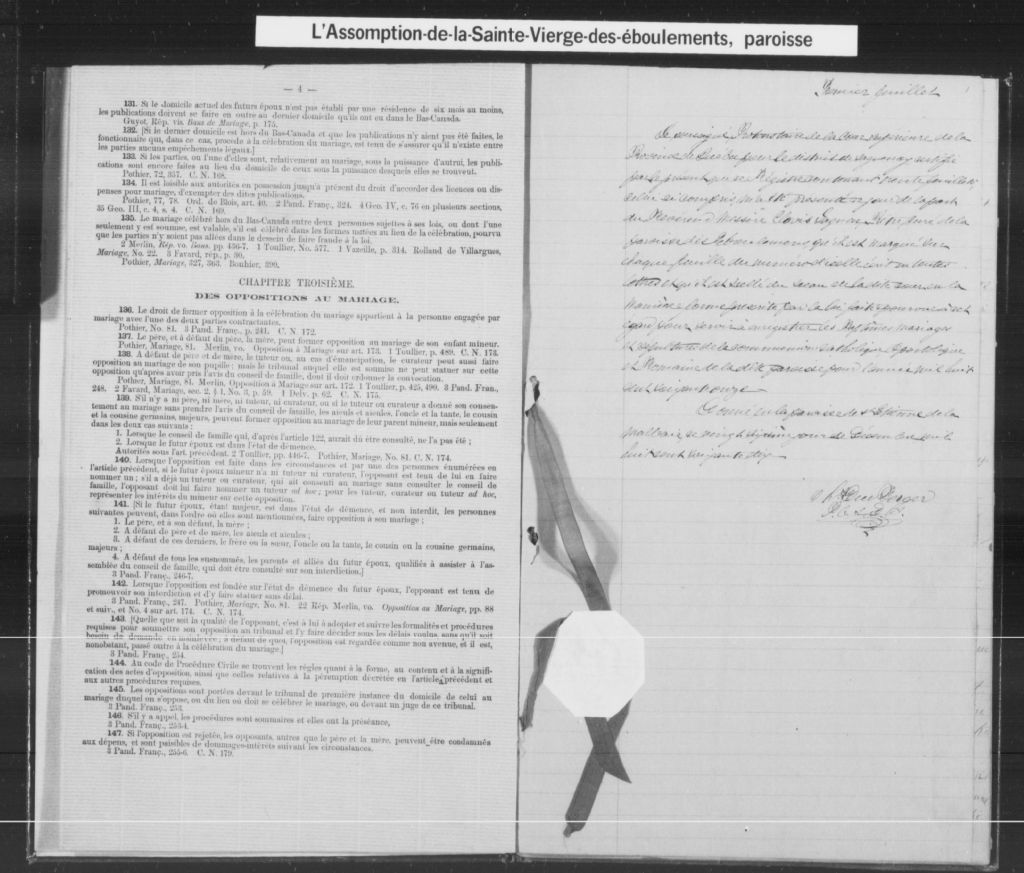 L'Assomption-de-la-Sainte-Vierge-des-éboulements, paroisse
— 4 —
131. Si le domicile actuel des futurs époux n'est pas établi par une résidence de six mois au moins,
les publications doivent se faire en outre au dernier domicile qu'ils ont eu dans le Bas-Canada.
Guyot, Rép. vis Bans de Mariage, p. 175.
132. [Si le dernier domicile est hors du Bas-Canada et que les publications n'y aient pas été faites, le
fonctionnaire qui, dans ce cas, procède à la célébration du mariage, est tenu de s'assurer qu'il n'existe entre
les parties aucuns empêchements légaux.]
133. Si les parties, ou l'une d'elles sont, relativement au mariage, sous la puissance d'autrui, les publi-
cations sont encore faites au lieu du domicile de ceux sous la puissance desquels elles se trouvent.
Pothier, 72, 357. C. N. 168.
134. Il est loisible aux autorités en possession jusqu'à présent du droit d'accorder des licences ou dis-
penses pour mariage, d'exempter des dites publications.
Pothier, 77, 78. Ord. de Blois, art. 40. 2 Pand. Franç., 324. 4 Geo. IV, c. 76 en plusieurs sections,
35 Geo. III, c. 4, s. 4. C. N. 169.
135. Le mariage célébré hors du Bas-Canada entre deux personnes sujettes à ses lois, ou dont l'une
seulement y est soumise, est valable, s'il est célébré dans les formes usitées au lieu de la célébration, pourvu
que les parties n'y soient pas allées dans le dessein de faire fraude à la loi.
2 Merlin, Rép. vo. Bans, pp. 456-7. 1 Toullier, No. 577. 1 Vazeille, p. 314. Rolland de Villargues,
Mariage, No. 22. 3 Favard, rép., p. 30.
Pothier, Mariage, 327, 363. Bouhier, 390.
CHAPITRE TROISIÈME.
DES OPPOSITIONS AU MARIAGE.
136. Le droit de former opposition à la célébration du mariage appartient à la personne engagée par
mariage avec l'une des deux parties contractantes.
Pothier, No. 81. 3 Pand. Franç., p. 241. C. N. 172.
137. Le père, et à défaut du père, la mère, peut former opposition au mariage de son enfant mineur.
Pothier, Mariage, 81. Merlin, vo. Opposition à Mariage sur art. 173. 1 Toullier, p. 489. C. N. 173.
138. A défaut de père et de mère, le tuteur ou, au cas d'émancipation, le curateur peut aussi faire
opposition au mariage de son pupille; mais le tribunal auquel elle est soumise ne peut statuer sur cette
opposition qu'après avoir pris l'avis du conseil de famille, dont il doit ordonner la convocation.
Pothier, Mariage, 81. Merlin, Opposition à Mariage sur art. 172. 1 Toullier, p. 425, 490. 3 Pand. Fran.,
248. 2 Favard, Mariage, sec. 2, § 1, No. 3, p. 59. 1 Delv. p. 62. C. N. 175.
139. S'il n'y a ni père, ni mère, ni tuteur, ni curateur, ou si le tuteur ou curateur a donné son consen-
tement au mariage sans prendre l'avis du conseil de famille, les aïeuls et aïeules, l'oncle et la tante, le cousin
et la cousine germains, majeurs, peuvent former opposition au mariage de leur parent mineur, mais seulement
dans les deux cas suivants :
1. Lorsque le conseil de famille qui, d'après l'article 122, aurait dû être consulté, ne l'a pas été ;
2. Lorsque le futur époux est dans l'état de démence.
Autorités sous l'art. précédent. 2 Toullier, pp. 446-7. Pothier, Mariage, No. 81. C. N. 174.
140. Lorsque l'opposition est faite dans les circonstances et par une des personnes énumérées en
l'article précédent, si le futur époux mineur n'a ni tuteur ni curateur, l'opposant est tenu de lui en faire
nommer un ; s'il a déjà un tuteur ou curateur, qui ait consenti au mariage sans consulter le conseil de
famille, l'opposant doit lui faire nommer un tuteur ad hoc ; pour les tuteur, curateur ou tuteur ad hoc,
représenter les intérêts du mineur sur cette opposition.
141. [Si le futur époux, étant majeur, est dans l'état de démence, et non interdit, les personnes
suivantes peuvent, dans l'ordre où elles sont mentionnées, faire opposition à son mariage ;
1. Le père, et à son défaut, la mère ;
2. A défaut de père et de mère, les aïeuls et aïeules ;
3. A défaut de ces derniers, le frère ou la sœur, l'oncle ou la tante, le cousin ou la cousine germains,
majeurs ;
4. A défaut de tous les susnommés, les parents et alliés du futur époux, qualifiés à assister à l'as-
semblée du conseil de famille, qui doit être consulté sur son interdiction.]
3 Pand. Franç., 246-7.
142. Lorsque l'opposition est fondée sur l'état de démence du futur époux, l'opposant est tenu de
promouvoir son interdiction et d'y faire statuer sans délai.
3 Pand. Franç., 247. Pothier, Mariage, No. 81. 22 Rép. Merlin, vo. Opposition au Mariage, pp. 88
et suiv., et No. 4 sur art. 174. C. N. 174.
143. [Quelle que soit la qualité de l'opposant, c'est à lui à adopter et suivre les formalités et procédures
requises pour soumettre son opposition au tribunal et l'y faire décider sous les délais voulus, sans qu'il soit
besoin de demande en mainlevée ; à défaut de quoi, l'opposition est regardée comme non avenue, et il est,
nonobstant, passé outre à la célébration du mariage.]
3 Pand. Franç., 254.
144. Au code de Procédure Civile se trouvent les règles quant à la forme, au contenu et à la signifi-
cation des actes d'opposition, ainsi que celles relatives à la péremption décrétée en l'article précédent et
aux autres procédures requises.
145. Les oppositions sont portées devant le tribunal de première instance du domicile de celui au
mariage duquel on s'oppose, ou du lieu où doit se célébrer le mariage, ou devant un juge de ce tribunal.
3 Pand. Franç., 253.
146. S'il y a appel, les procédures sont sommaires et elles ont la préséance,
3 Pand. Franç., 253-4.
147. Si l'opposition est rejetée, les opposants, autres que le père et la mère, peuvent être condamnés
aux dépens, et sont passibles de dommages-intérêts suivant les circonstances.
3 Pand. Franç., 255-6. C. N. 179.
Premier feuillet
Le soussigné Protonotaire de la Cour supérieure de la
Province de Québec pour le district de Saguenay certifie
par le présent que ce Régistre contenant trente feuillets
celui-ci compris m'a été présenté ce jour de la part
du Révérend Messire curé de la
paroisse des Eboulements qu'il est marqué sur
chaque feuille du numéro d'icelle écrit en toutes
lettres et qu'il est scellé du sceau de la dite cour en la
manière
pour servir à enregistrer les Baptêmes mariages
et sépultures de la communion catholique Apostolique
et Romaine de la dite paroisse pour l'année mil huit
cent
Donné en la paroisse de St Etienne de la
Malbaie ce vingt sixième jour de Décembre mil
huit cent